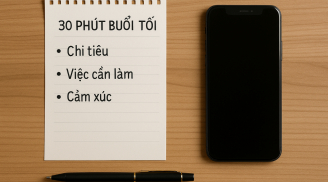 30 PHÚT BUỔI TỐI
• Chi tiêu
• Việc cần làm
• Cảm xúc